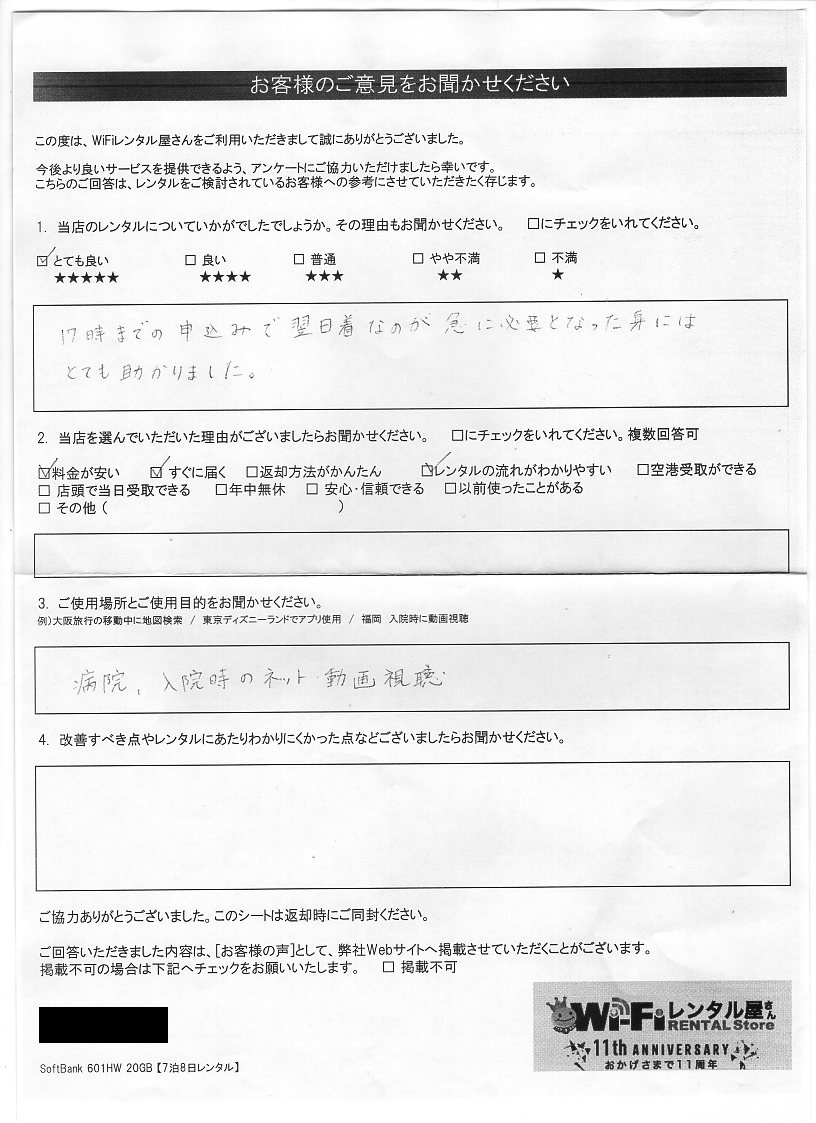 お客様のご意見をお聞かせください
この度は、WiFiレンタル屋さんをご利用いただきまして誠にありがとうございました。
今後より良いサービスを提供できるよう、アンケートにご協力いただけましたら幸いです。
こちらのご回答は、レンタルをご検討されているお客様への参考にさせていただきたく存じます。
1. 当店のレンタルについていかがでしたでしょうか。その理由もお聞かせください。 □にチェックをいれてください。
☑ とても良い □ 良い □ 普通 □ やや不満 □ 不満
★★★★★ ★★★★ ★★★ ★★ ★
17時までの申込みで翌日着なのが急に必要となった身には
とても助かりました。
2. 当店を選んでいただいた理由がございましたらお聞かせください。 □にチェックをいれてください。複数回答可
☑料金が安い ☑ すぐに届く □返却方法がかんたん ☑レンタルの流れがわかりやすい □空港受取ができる
□ 店頭で当日受取できる □年中無休 □ 安心・信頼できる □以前使ったことがある
□ その他 ( )
3. ご使用場所とご使用目的をお聞かせください。
例)大阪旅行の移動中に地図検索 / 東京ディズニーランドでアプリ使用 / 福岡 入院時に動画視聴
病院、入院時のネット動画視聴
4. 改善すべき点やレンタルにあたりわかりにくかった点などございましたらお聞かせください。
ご協力ありがとうございました。このシートは返却時にご同封ください。
ご回答いただきました内容は、[お客様の声]として、弊社Webサイトへ掲載させていただくことがございます。
掲載不可の場合は下記へチェックをお願いいたします。 □ 掲載不可
Wi-Fiレンタル屋さん
RENTAL Store
11th ANNIVERSARY
おかげさまで11周年
SoftBank 601HW 20GB【7泊8日レンタル】